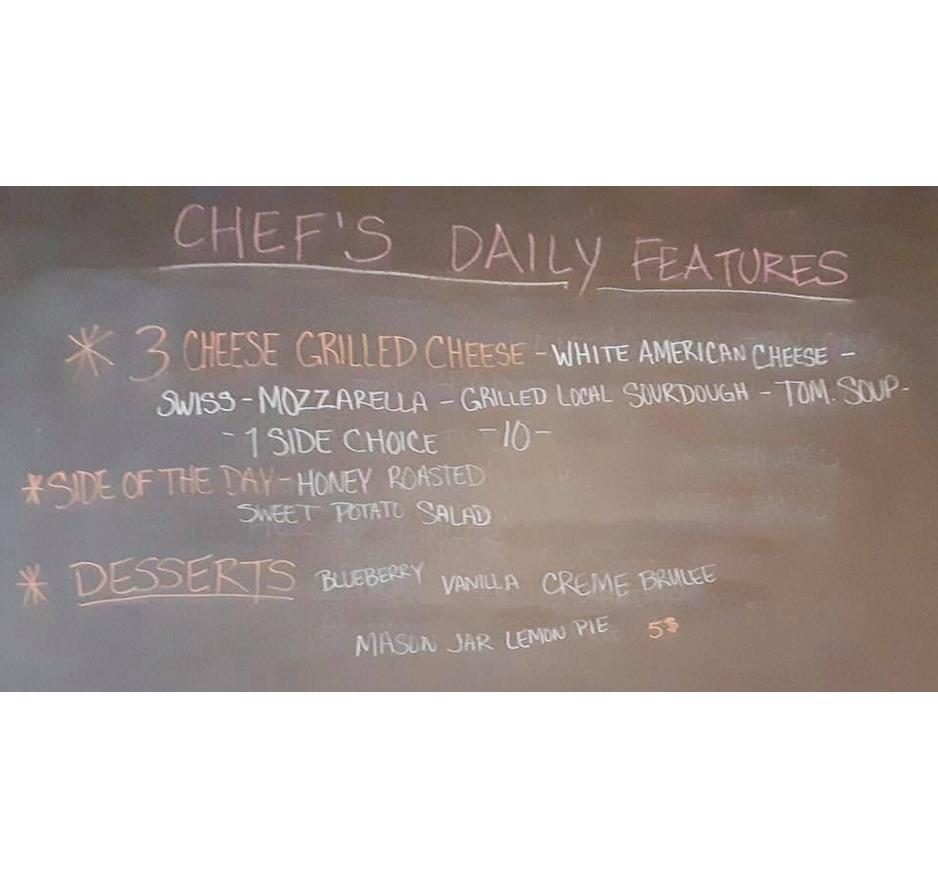 CHEF'S DAILY FEATURES
* 3 CHEESE GRILLED CHEESE - WHITE AMERICAN CHEESE -
SWISS - MOZZARELLA - GRILLED LOCAL SOURDOUGH - TOM. SOUP -
- 1 SIDE CHOICE - 10 -
* SIDE OF THE DAY - HONEY ROASTED
SWEET POTATO SALAD
* DESSERTS BLUEBERRY VANILLA CREME BRULEE
MASON JAR LEMON PIE 5$